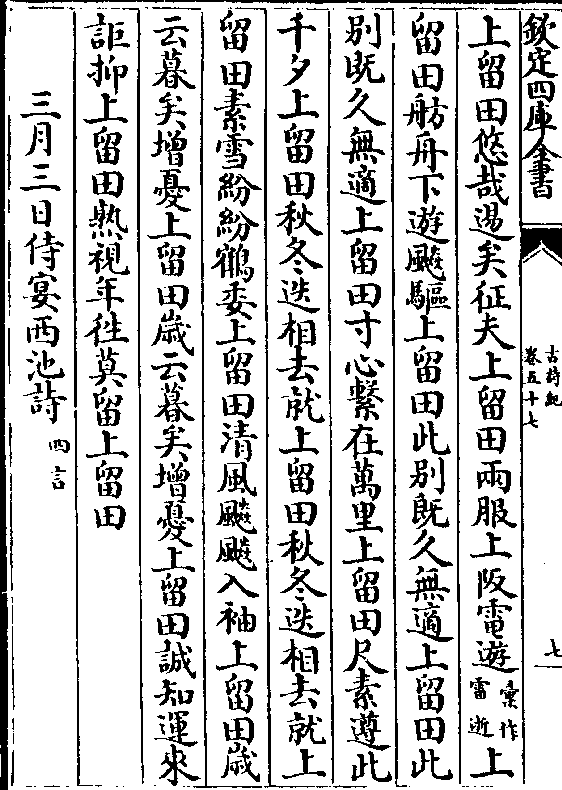 欽定四庫全書
古詩紀
卷五十七
七
上留田悠哉逷矣征夫上留田兩服上阪電遊彙作雷逝上
留田舫舟下遊飈驅上留田此别既久無適上留田此
别既久無適上留田寸心繫在萬里上留田尺素遵此
千夕上留田秋冬迭相去就上留田秋冬迭相去就上
留田素雪紛紛鶴委上留田清風飈飈入袖上留田歳
云暮矣增憂上留田歳云暮矣增憂上留田誠知運來
詎抑上留田熟視年徃莫留上留田
三月三日侍宴西池詩四言